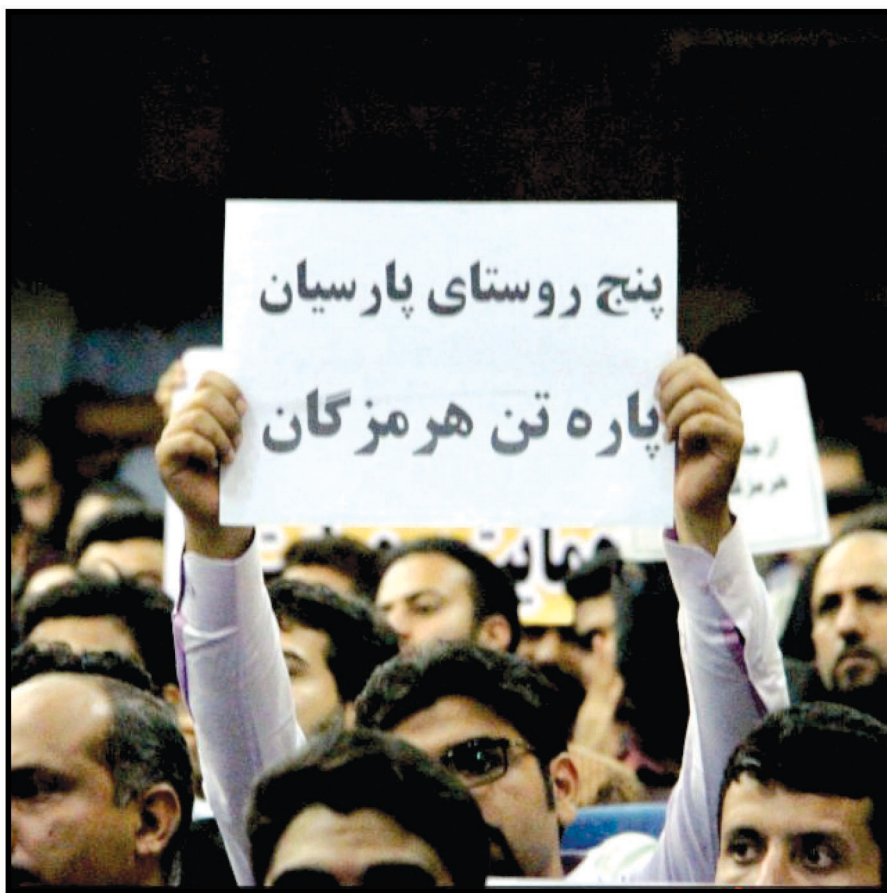 پنج روستای پارسیان
پاره تن هرمزگان